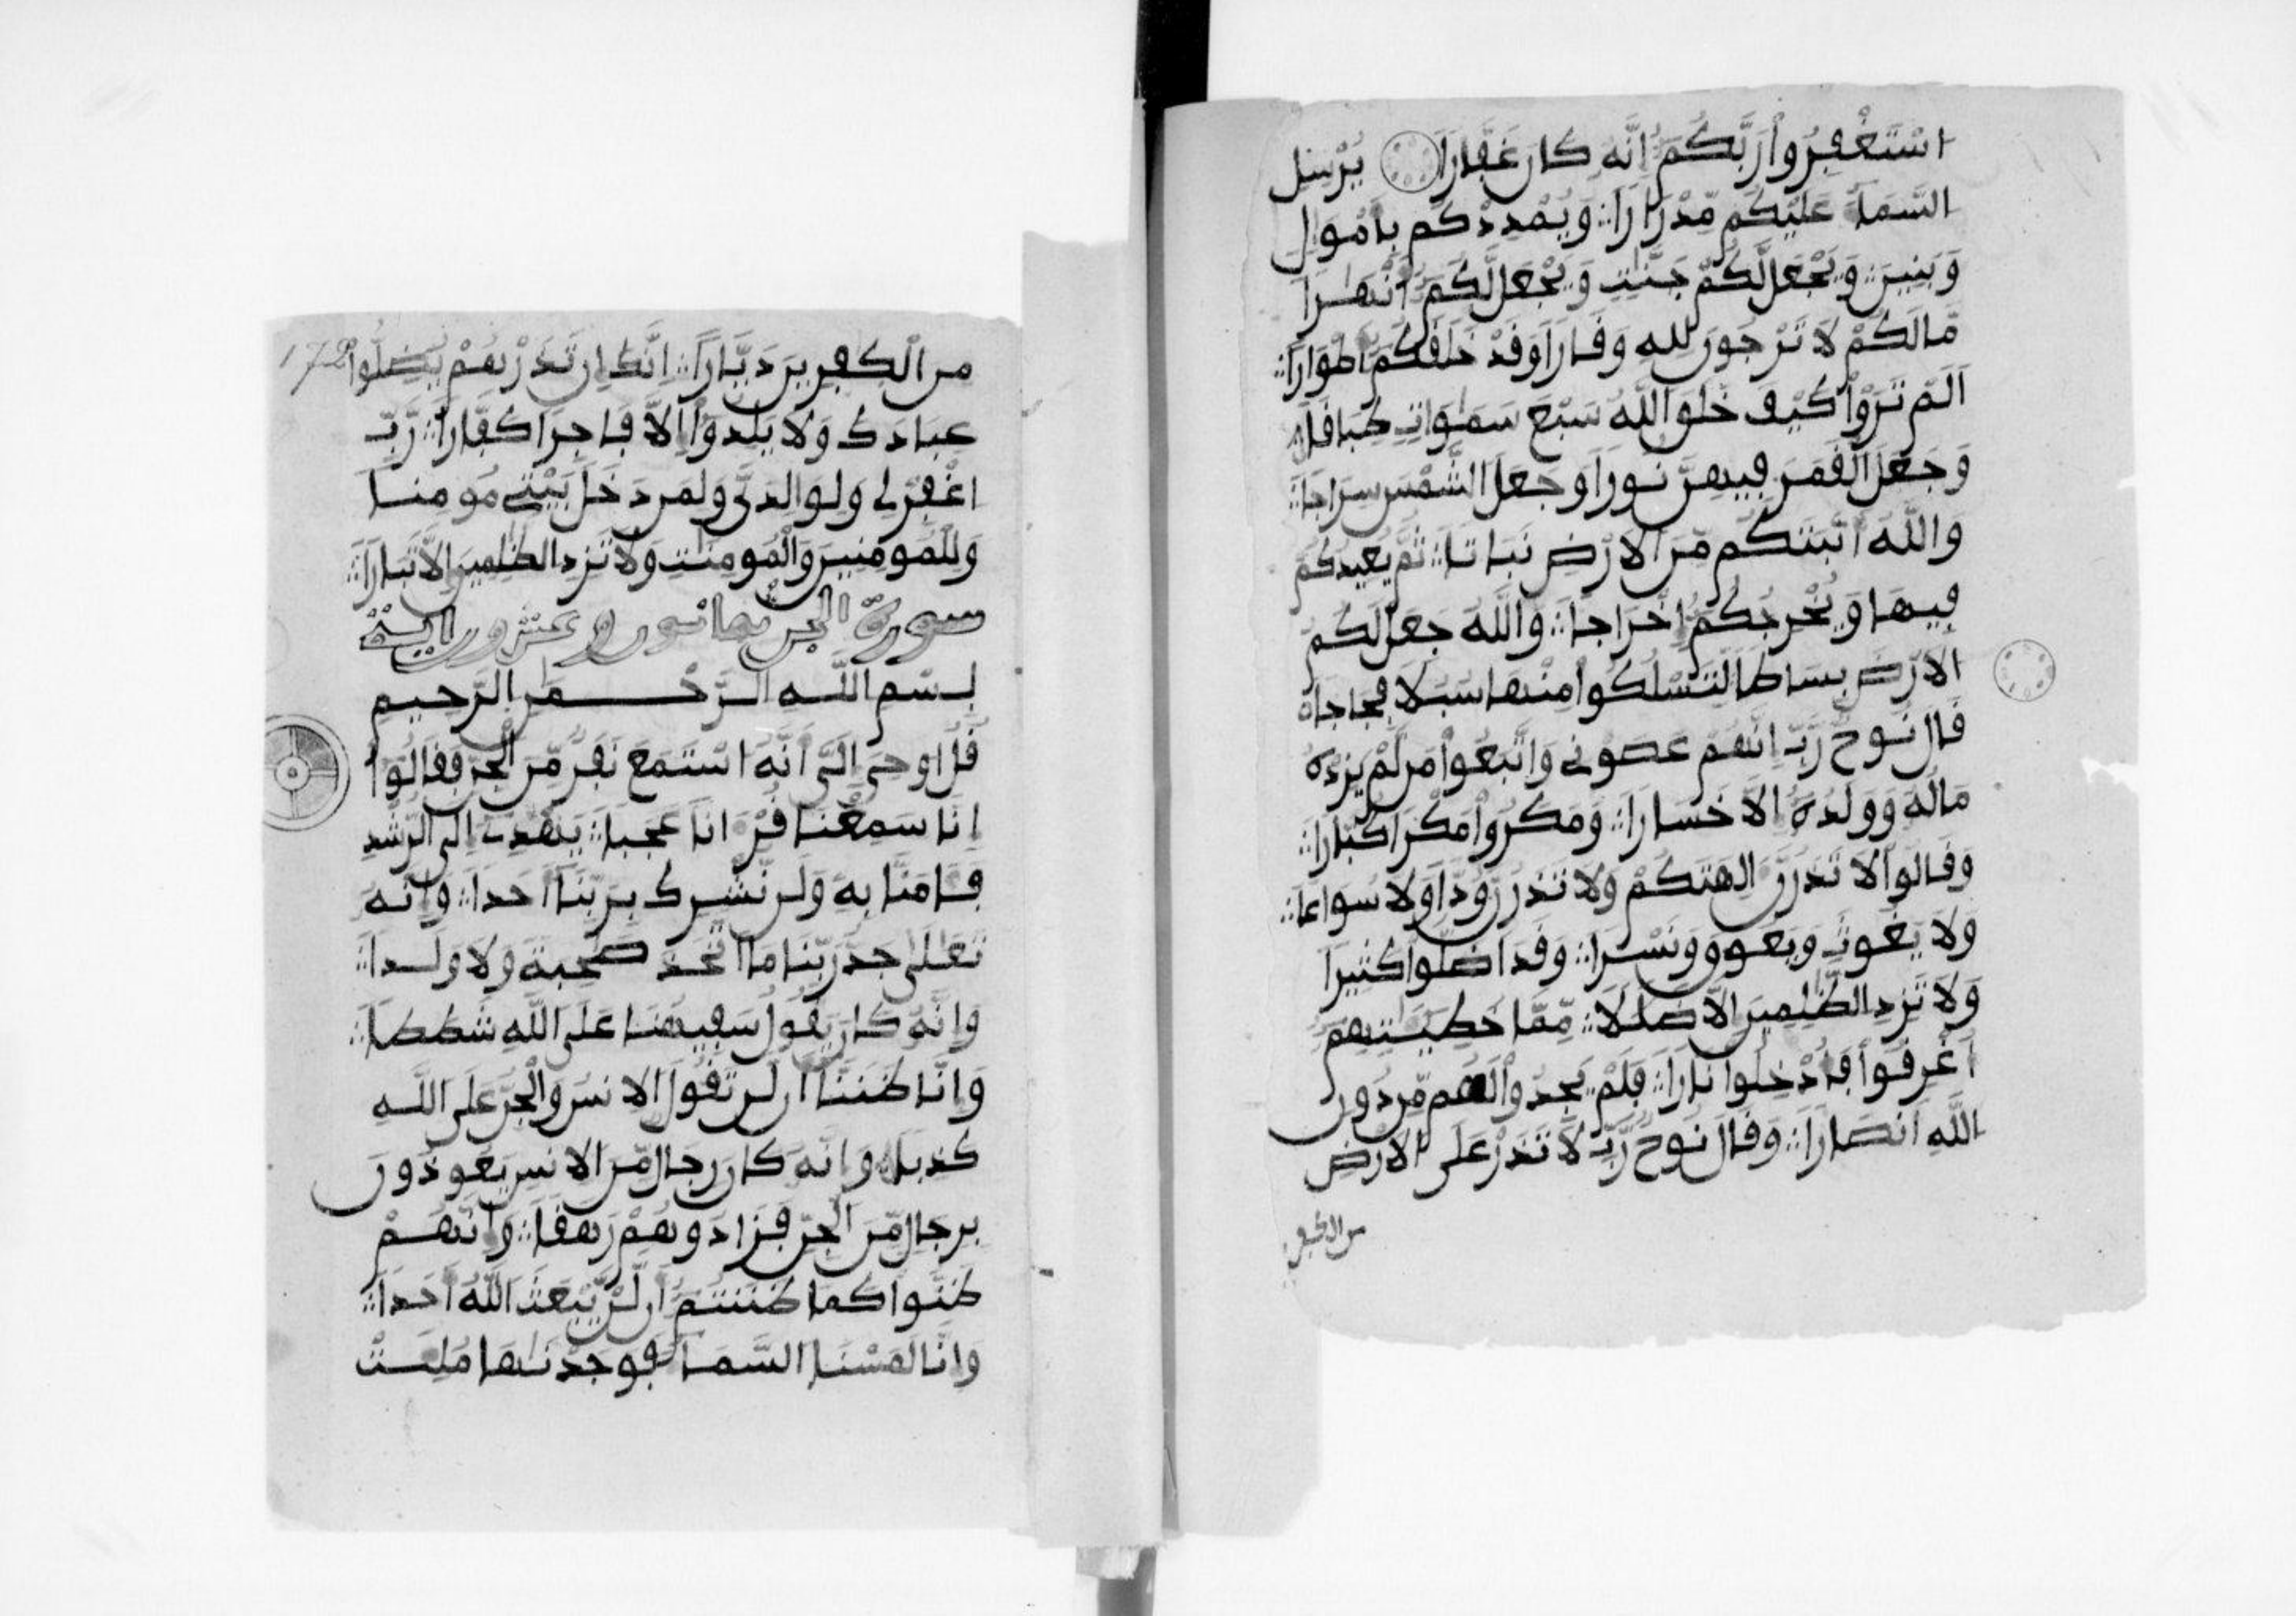 اسْتَغْفِرُواْ رَبَّكُمُ إِنَّهُ كَانَ غَفَّاراً يُرْسِلِ
السَّمَآءَ عَلَيْكُم مِّدْرَاراً وَيُمْدِدْكُم بِأَمْوَالٍ
وَبَنِينَ وَيَجْعَل لَّكُمْ جَنَّٰتٍ وَيَجْعَل لَّكُمُ أَنْهَٰراً
مَّا لَكُمْ لَا تَرْجُونَ لِلهِ وَقَاراً وَقَدْ خَلَقَكُمُ أَطْوَاراً
أَلَمْ تَرَوْاْ كَيْفَ خَلَقَ اللَّهُ سَبْعَ سَمَٰوَاتٍ طِبَاقاً
وَجَعَلَ الْقَمَرَ فِيهِنَّ نُوراً وَجَعَلَ الشَّمْسَ سِرَاجاً
وَاللَّهُ أَنْبَتَكُم مِّنَ الَارْضِ نَبَاتاً ثُمَّ يُعِيدُكُمْ
فِيهَا وَيُخْرِجُكُمُ إِخْرَاجاً وَاللَّهُ جَعَلَ لَكُمُ
الَارْضَ بِسَاطاً لِّتَسْلُكُواْ مِنْهَا سُبُلاً فِجَاجاً
قَالَ نُوحٌ رَّبِّ إِنَّهُمْ عَصَوْنِي وَاتَّبَعُواْ مَن لَّمْ يَزِدْهُ
مَالُهُ وَوَلَدُهُ إِلَّا خَسَاراً وَمَكَرُواْ مَكْراً كُبَّاراً
وَقَالُواْ لَا تَذَرُنَّ ءَالِهَتَكُمْ وَلَا تَذَرُنَّ وُدّاً وَلَا سُوَاعاً
وَلَا يَغُوثَ وَيَعُوقَ وَنَسْراً وَقَدَ اضَلُّواْ كَثِيراً
وَلَا تَزِدِ الظَّٰلِمِينَ إِلَّا ضَلَٰلاً مِّمَّا خَطِيـَٰٔتِهِمُ
أُغْرِقُواْ فَأُدْخِلُواْ نَاراً فَلَمْ يَجِدُواْ لَهُم مِّن دُونِ
اللَّهِ أَنصَاراً وَقَالَ نُوحٌ رَّبِّ لَا تَذَرْ عَلَى الَارْضِ
من الكفر
172
مِنَ الْكٰفِرِينَ دَيَّاراً إِنَّكَ إِن تَذَرْهُمْ يُضِلُّواْ
عِبَادَكَ وَلَا يَلِدُواْ إِلَّا فَاجِراً كَفَّاراً رَّبِّ
اغْفِرْ لِي وَلِوَٰلِدَيَّ وَلِمَن دَخَلَ بَيْتِي مُومِناً
وَلِلْمُومِنِينَ وَالْمُومِنَٰتِ وَلَا تَزِدِ الظَّٰلِمِينَ إِلَّا تَبَاراً
سورة الجن ثمانون وعشرون اية
بِسْمِ اللَّهِ الرَّحْمَٰنِ الرَّحِيمِ
قُلُ اوحِيَ إِلَيَّ أَنَّهُ اسْتَمَعَ نَفَرٌ مِّنَ الْجِنِّ فَقَالُواْ
إِنَّا سَمِعْنَا قُرْءَاناً عَجَباً يَهْدِي إِلَى الرُّشْدِ
فَـَٔامَنَّا بِهِ وَلَن نُّشْرِكَ بِرَبِّنَا أَحَداً وَإِنَّهُ
تَعَٰلَىٰ جَدُّ رَبِّنَا مَا اتَّخَذَ صَٰحِبَةً وَلَا وَلَداً
وَإِنَّهُ كَانَ يَقُولُ سَفِيهُنَا عَلَى اللَّهِ شَطَطاً
وَإِنَّا ظَنَنَّا أَن لَّن تَقُولَ الِانسُ وَالْجِنُّ عَلَى اللَّهِ
كَذِباً وَإِنَّهُ كَانَ رِجَالٌ مِّنَ الِانسِ يَعُوذُونَ
بِرِجَالٍ مِّنَ الْجِنِّ فَزَادُوهُمْ رَهَقاً وَإِنَّهُمْ
ظَنُّواْ كَمَا ظَنَنتُمُ أَن لَّنْ يَّبْعَثَ اللَّهُ أَحَداً
وَإِنَّا لَمَسْنَا السَّمَآءَ فَوَجَدْنَٰهَا مُلِئَتْ